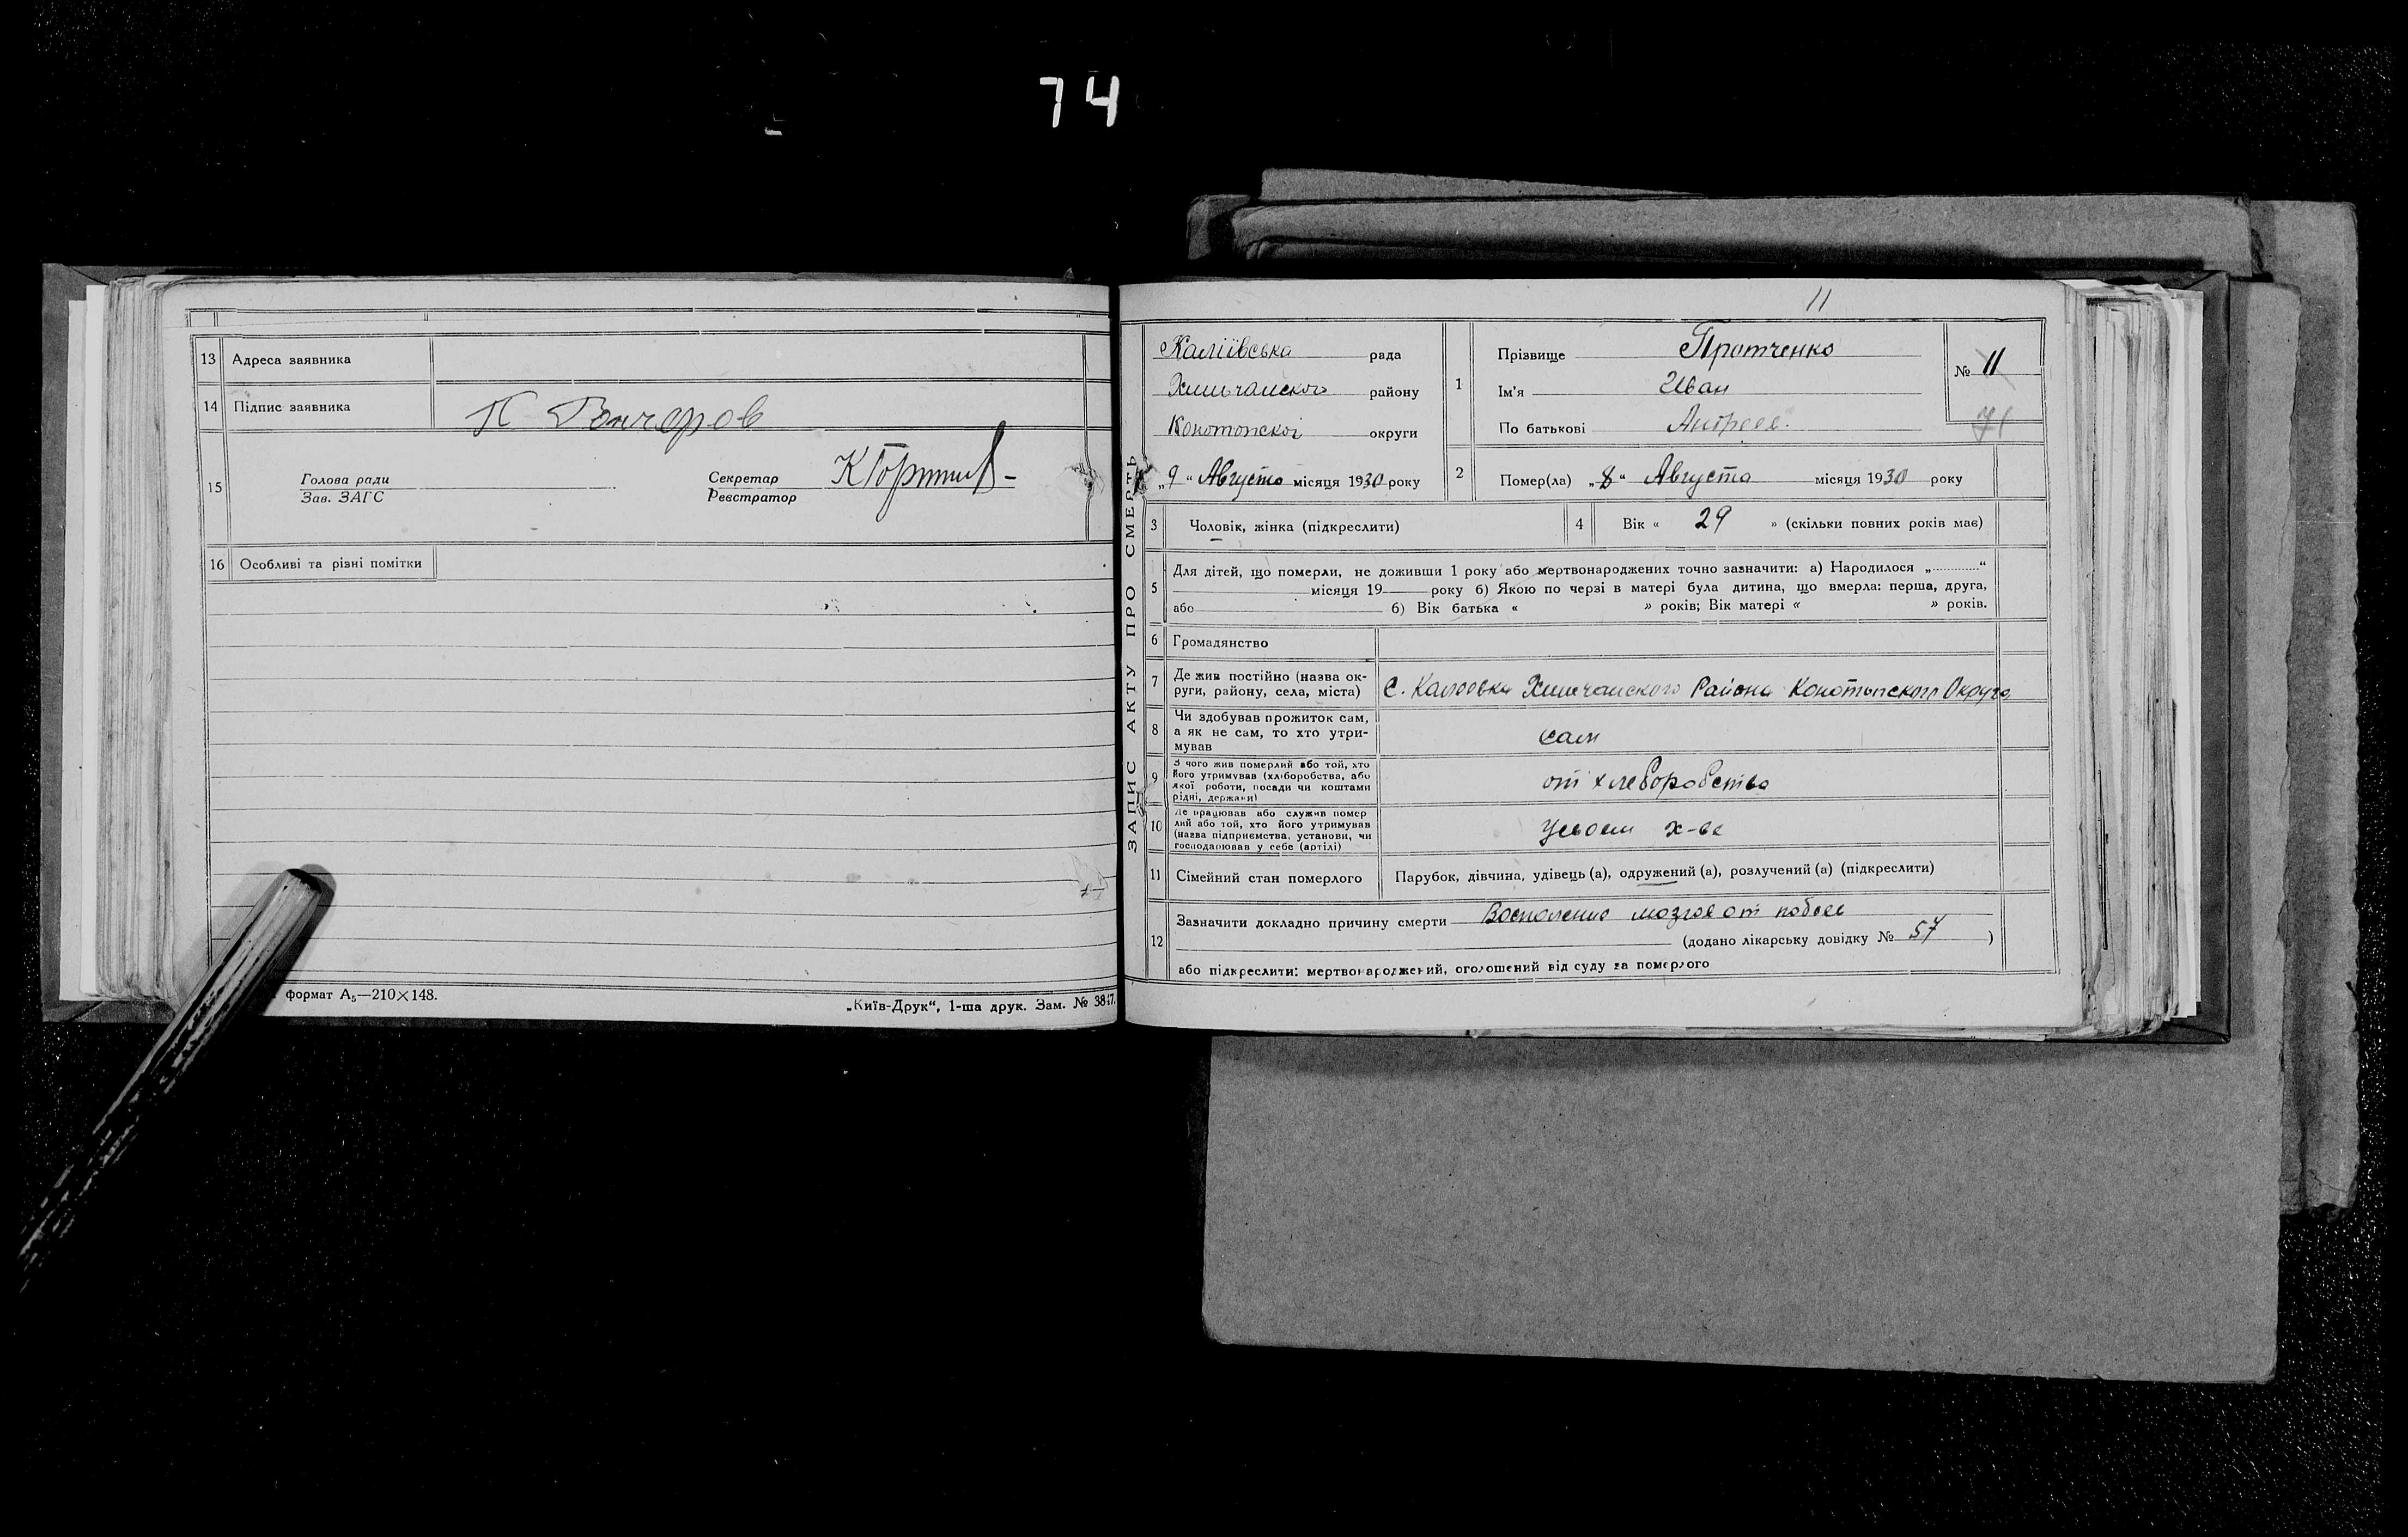 74
13 Адреса заявника
14 Підпис заявника
П Гончаров
15
Голова ради
Зав. ЗАГС
Секретар
Реєстратор
16 Особливі та різні помітки
формат А5—210×148.
„Київ-Друк“, 1-ша друк. Зам. № 3847.
11
ЗАПИС АКТУ ПРО СМЕРТЬ
рада
району
Конотопскоі округи
„9“ Августа місяця 1930 року
1
Прізвище Протченко
Ім'я Иван
По батькові Андреев.
№ 11
71
2 Помер(ла) „8“ Августа місяця 1930 року
3 Чоловік, жінка (підкреслити)
4 Вік « 29 » (скільки повних років має)
5 Для дітей, що померли, не доживши 1 року або мертвонароджених точно зазначити: а) Народилося „............“
місяця 19 року б) Якою по черзі в матері була дитина, що вмерла: перша, друга,
або б) Вік батька « » років; Вік матері « » років.
6 Громадянство
7 Де жив постійно (назва ок-
руги, району, села, міста)
С. Района Конотопского Округа
8 Чи здобував прожиток сам,
а як не сам, то хто утри-
мував
сам
9 З чого жив померлий або той, хто
його утримував (хліборобства, або
якої роботи, посади чи коштами
рідні, держави)
от хлеборобства
10 Де працював або служив помер
лий або той, хто його утримував
(назва підприємства, установи, чи
господарював у себе (артілі)
У своем х-ве
11 Сімейний стан померлого
Парубок, дівчина, удівець (а), одружений (а), розлучений (а) (підкреслити)
12 Зазначити докладно причину смерти Воспаление мозгов от побоев
(додано лікарську довідку № 57 )
або підкреслити: мертвонароджений, оголошений від суду за померлого